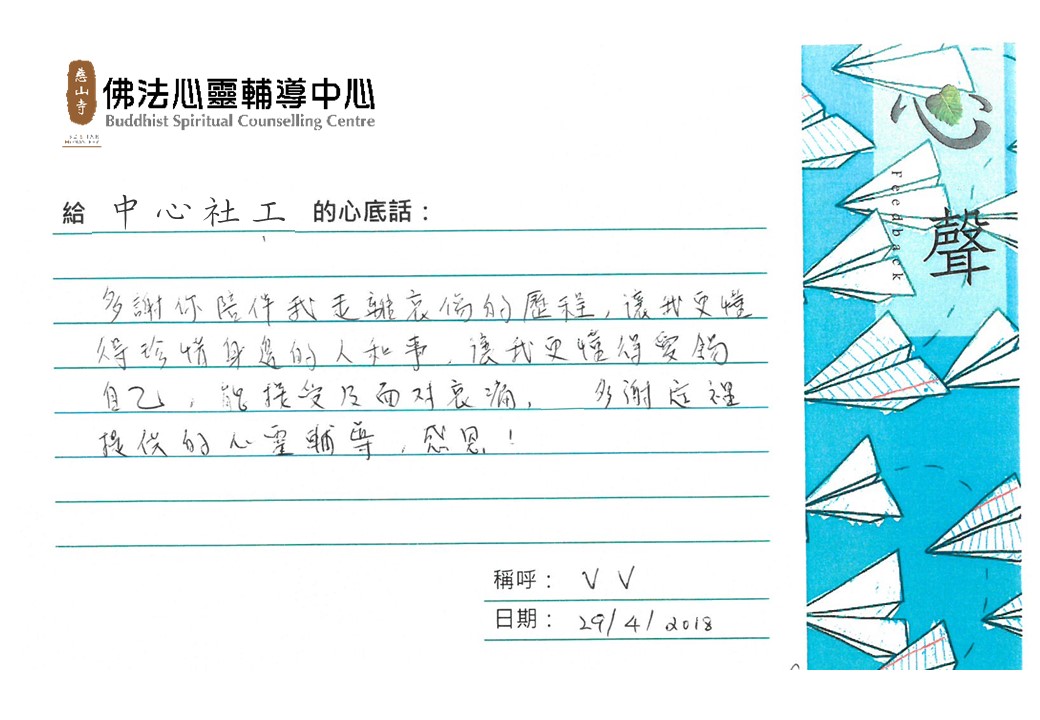 慈山寺
佛法心靈輔導中心
Buddhist Spiritual Counselling Centre
心
Feedback
聲
給 中心社工 的心底話：
多謝你陪伴我走離哀傷的歷程，讓我更懂
得珍惜身邊的人和事，讓我更懂得愛錫
自己，能接受及面对哀痛， 多謝这裡
提供的心靈輔導，感恩！
稱呼： V V
日期： 29/4/2018